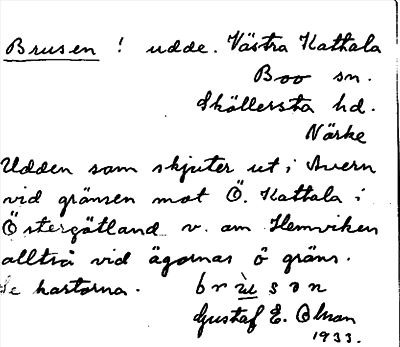 Brusen ! udde. Västra Kattala
Boo sn.
Sköllersta hd.
Närke
Udden som skjuter ut i Avern
vid gränsen mot Ö. Kattala i
Östergötland v. om Hemviken
alltså vid ägornas ö gräns.
Se kartorna. brùsən
Gustaf E. Olsson
1933.